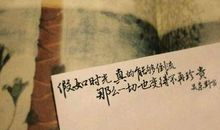 假如时光真的能够倒流
那么一切也变得不再珍贵